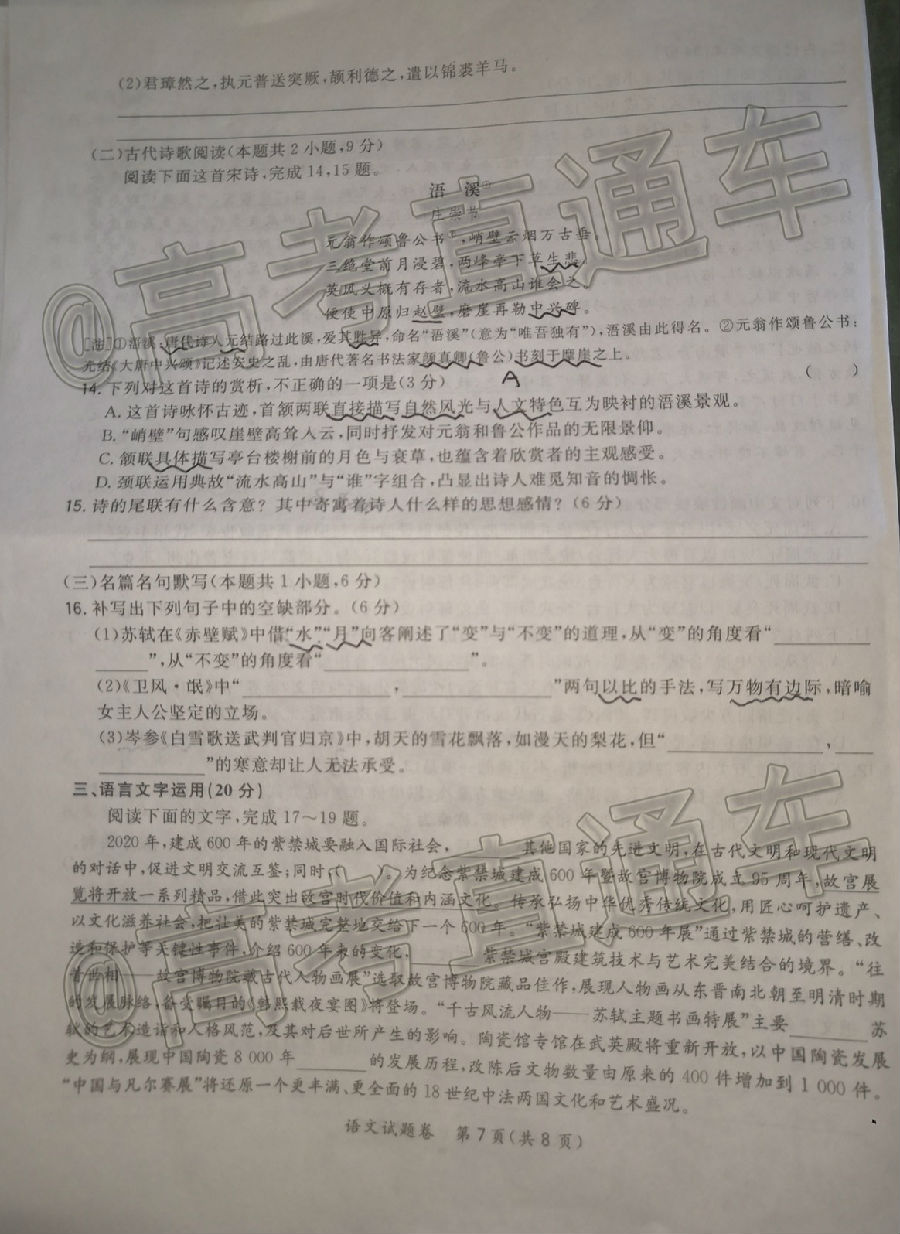 (2)君璋然之,执元普送突厥,颉利德之,遣以锦裘羊马。
(二)古代诗歌阅读(本题共2小题,9分)
阅读下面这首宋诗,完成14,15题。
浯 溪①
元翁作颂鲁公书②,峭壁云烟万古垂。
堂前月浸碧,两峰亭下草生悲。
英风大概有存者,流水高山谁会之。
便使中原归赵璧,磨崖再勒中兴碑。
[注]①浯溪:唐代诗人元结路过此溪,爱其胜异,命名“浯溪”(意为“唯吾独有”),浯溪由此得名。②元翁作颂鲁公书:
元结《大唐中兴颂》记述安史之乱,由唐代著名书法家颜真卿(鲁公)书刻于摩崖之上。
14.下列对这首诗的赏析,不正确的一项是(3分) A ( )
A.这首诗咏怀古迹,首颔两联直接描写自然风光与人文特色互为映衬的浯溪景观。
B.“峭壁”句感叹崖壁高耸入云,同时抒发对元翁和鲁公作品的无限景仰。
C.颔联具体描写亭台楼榭前的月色与衰草,也蕴含着欣赏者的主观感受。
D.颈联运用典故“流水高山”与“谁”字组合,凸显出诗人难觅知音的惆怅。
15.诗的尾联有什么含意?其中寄寓着诗人什么样的思想感情?(6分)
(三)名篇名句默写(本题共1小题,6分)
16.补写出下列句子中的空缺部分。(6分)
(1)苏轼在《赤壁赋》中借“水”“月”向客阐述了“变”与“不变”的道理,从“变”的角度看“________
________”,从“不变”的角度看“________”。
(2)《卫风·氓》中“________,________”两句以比的手法,写万物有边际,暗喻
女主人公坚定的立场。
(3)岑参《白雪歌送武判官归京》中,胡天的雪花飘落,如漫天的梨花,但“________,
________”的寒意却让人无法承受。
三、语言文字运用(20分)
阅读下面的文字,完成17~19题。
2020年,建成600年的紫禁城要融入国际社会,________其他国家的先进文明,在古代文明和现代文明
的对话中,促进文明交流互鉴;同时,( )。为纪念紫禁城建成600年暨故宫博物院成立95周年,故宫展
览将开放一系列精品,借此突出故宫时代价值和内涵文化。传承弘扬中华优秀传统文化,用匠心呵护遗产、
以文化滋养社会,把壮美的紫禁城完整地交给下一个600年。“紫禁城建成600年展”通过紫禁城的营缮、改
造和保护等关键性事件,介绍600年来的变化,________紫禁城宫殿建筑技术与艺术完美结合的境界。“往
昔世相——故宫博物院藏古代人物画展”选取故宫博物院藏品佳作,展现人物画从东晋南北朝至明清时期
的发展脉络,备受瞩目的《韩熙载夜宴图》将登场。“千古风流人物——苏轼主题书画特展”主要________苏
轼的艺术造诣和人格风范,及其对后世所产生的影响。陶瓷馆专馆在武英殿将重新开放,以中国陶瓷发展
史为纲,展现中国陶瓷8 000年________的发展历程,改陈后文物数量由原来的400件增加到1 000件。
“中国与凡尔赛展”将还原一个更丰满、更全面的18世纪中法两国文化和艺术盛况。
语文试题卷 第7页(共8页)
@高考直通车
@高考直通车